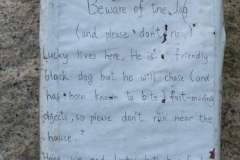 Beware of the dog
(and please don't run)
Lucky lives here. He is a friendly
black dog but he will chase (and
has been known to bite) fast-moving
objects, so please don't run near the
house.